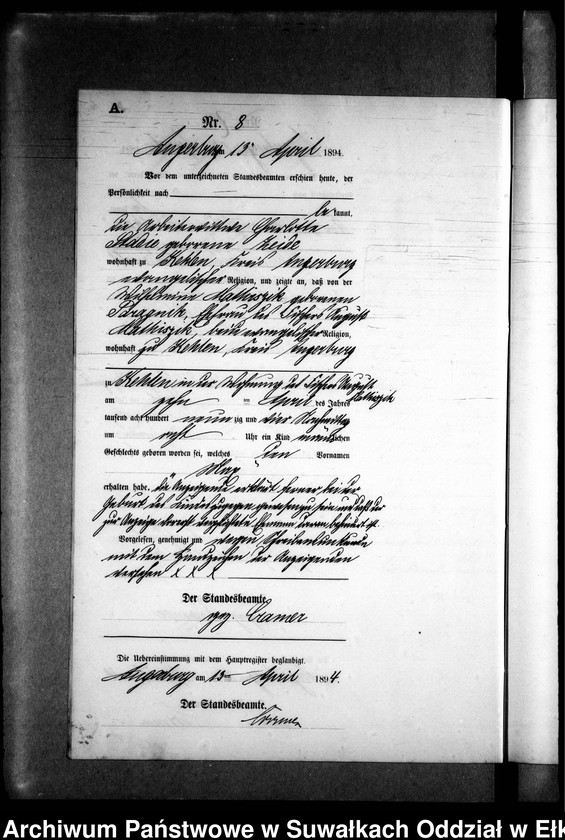 A.
Nr. 8
Angerburg am 13. April 1894.
Vor dem unterzeichneten Standesbeamten erschien heute, der
Persönlichkeit nach
be kannt,
die Arbeiterwittwe Charlotte
Stadie geborene
wohnhaft zu Kehlen, Kreis Angerburg
evangelischer Religion, und zeigte an, daß von der
Wilhelmine Mathiszik geborenen
Ehefrau des Fischers August
Mathiszik, beide evangelischer Religion,
wohnhaft zu Kehlen, Kreis Angerburg
zu Kehlen, in der Wohnung des Fischers August
Mathiszik
am zehn ten April des Jahres
tausend acht hundert neun zig und vier Nachmittag
um acht Uhr ein Kind männlichen
Geschlechts geboren worden sei, welches den Vornamen
Max
erhalten habe. Die Anzeigende erklärt ferner bei der
Geburt des Kindes zugegen gewesen zu sein und daß der
zur Anzeige
Vorgelesen, genehmigt und wegen Schreibensunkunde
mit dem Handzeichen der Anzeigenden
versehen x x x
Der Standesbeamte.
gez.
Die Uebereinstimmung mit dem Hauptregister beglaubigt.
Angerburg am 13 April 1894.
Der Standesbeamte.
Archiwum Państwowe w Suwałkach Oddział w Ełk